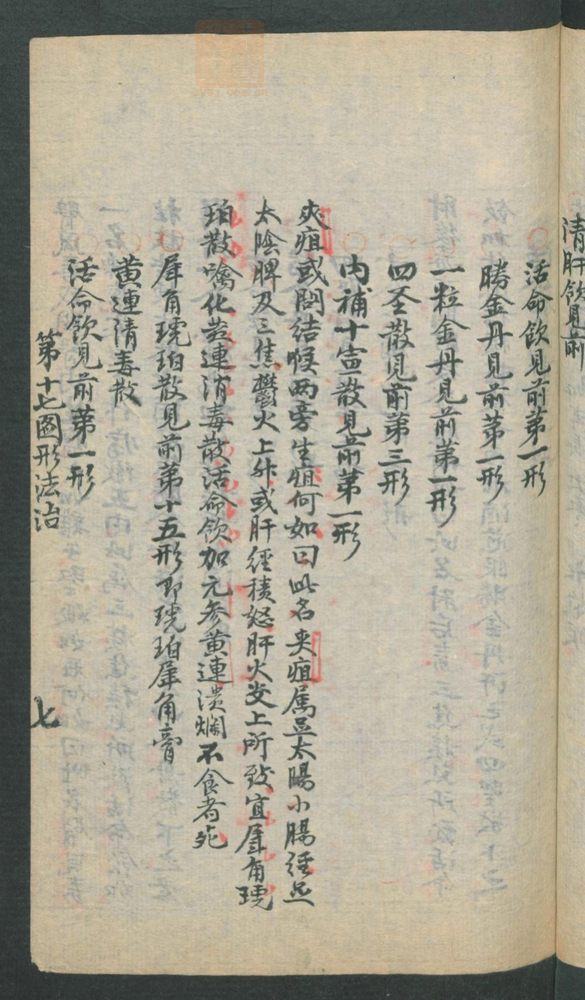 清肝飲見前
活命飲見前第一形
勝金丹見前第一形
一粒金丹見前第一形
四圣散見前第三形
内補十宣散見前第一形
夾疽或問結喉两旁生疽何如曰此名夾疽属足太陽小腸経足
太陰脾及三焦鬱火上外或肝經積怒肝火炎上所致宜犀角琥
珀散噙化黄連消毒散活命飲加元参黄連潰爛不食者死
犀角琥珀散見前第十五形即琥珀犀角膏
黄連消毒散
活命飲見前第一形
第十七圖形法治
七